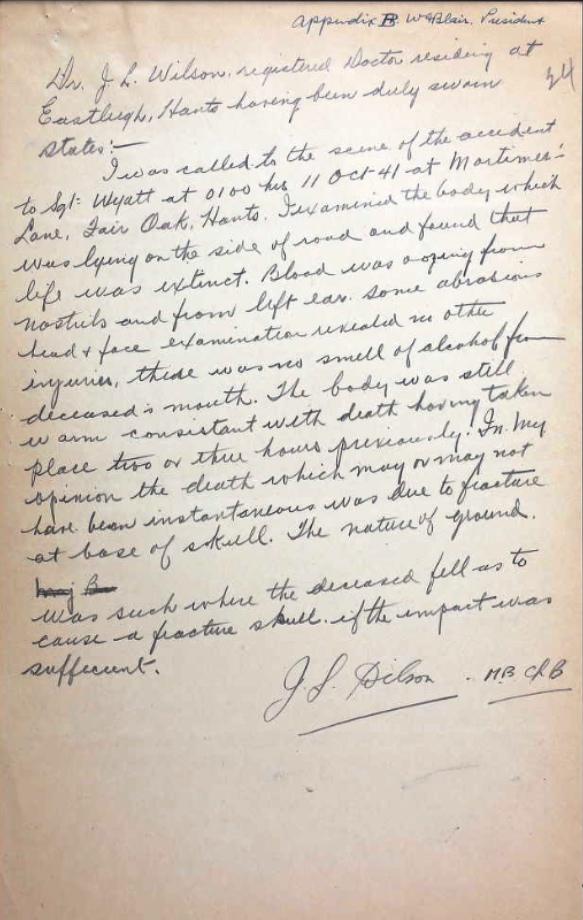 Appendix B. W G Blair. President
24
Dr. J. L. Wilson. registered Doctor residing at
Eastleigh, Hants having been duly sworn
states:-
I was called to the scene of the accident
to Sgt: Wyatt at 0100 hrs 11 Oct-41 at Mortimer's
Lane, Fair Oak, Hants. I examined the body which
was lying on the side of road and found that
life was extinct. Blood was oozing from
nostrils and from left ear. Some abrasions
head & face examination revealed no other
injuries, there was no smell of alcohol from
deceased's mouth. The body was still
warm consistant with death having taken
place two or three hours previously. In my
opinion the death which may or may not
have been instantaneous was due to fracture
at base of skull. The nature of ground.
was such where the deceased fell as to
cause a fracture skull. if the impact was
sufficient.
J. L. Wilson. M.B. Ch B